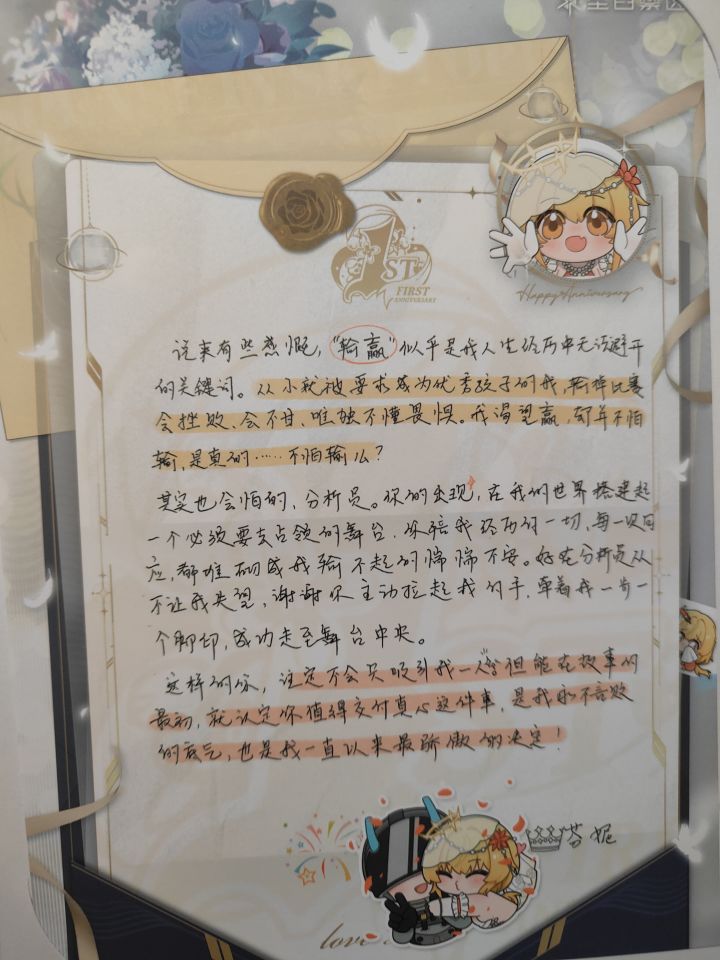 1ST
FIRST
ANNIVERSARY
Happy Anniversary
说来有些感慨，“输赢”似乎是我人生经历中无法避开
的关键词。从小就被要求成为优秀孩子的我，输掉比赛
会挫败、会不甘、唯独不懂畏惧。我渴望赢，却并不怕
输，是真的……不怕输么？
其实也会怕的，分析员。你的出现，在我的世界搭建起
一个必须要支点领的舞台，你陪我经历的一切，每一次回
应，都堆砌成我输不起的惴惴不安。好在分析员从
不让我失望，谢谢你主动拉起我的手，牵着我一步一
个脚印，成功走至舞台中央。
这样的你，注定不会只吸引我一人，但能在故事的
最初，就认定你值得交付真心这件事，是我永不言败
的底气，也是我一直以来最骄傲的决定！
芬妮
love